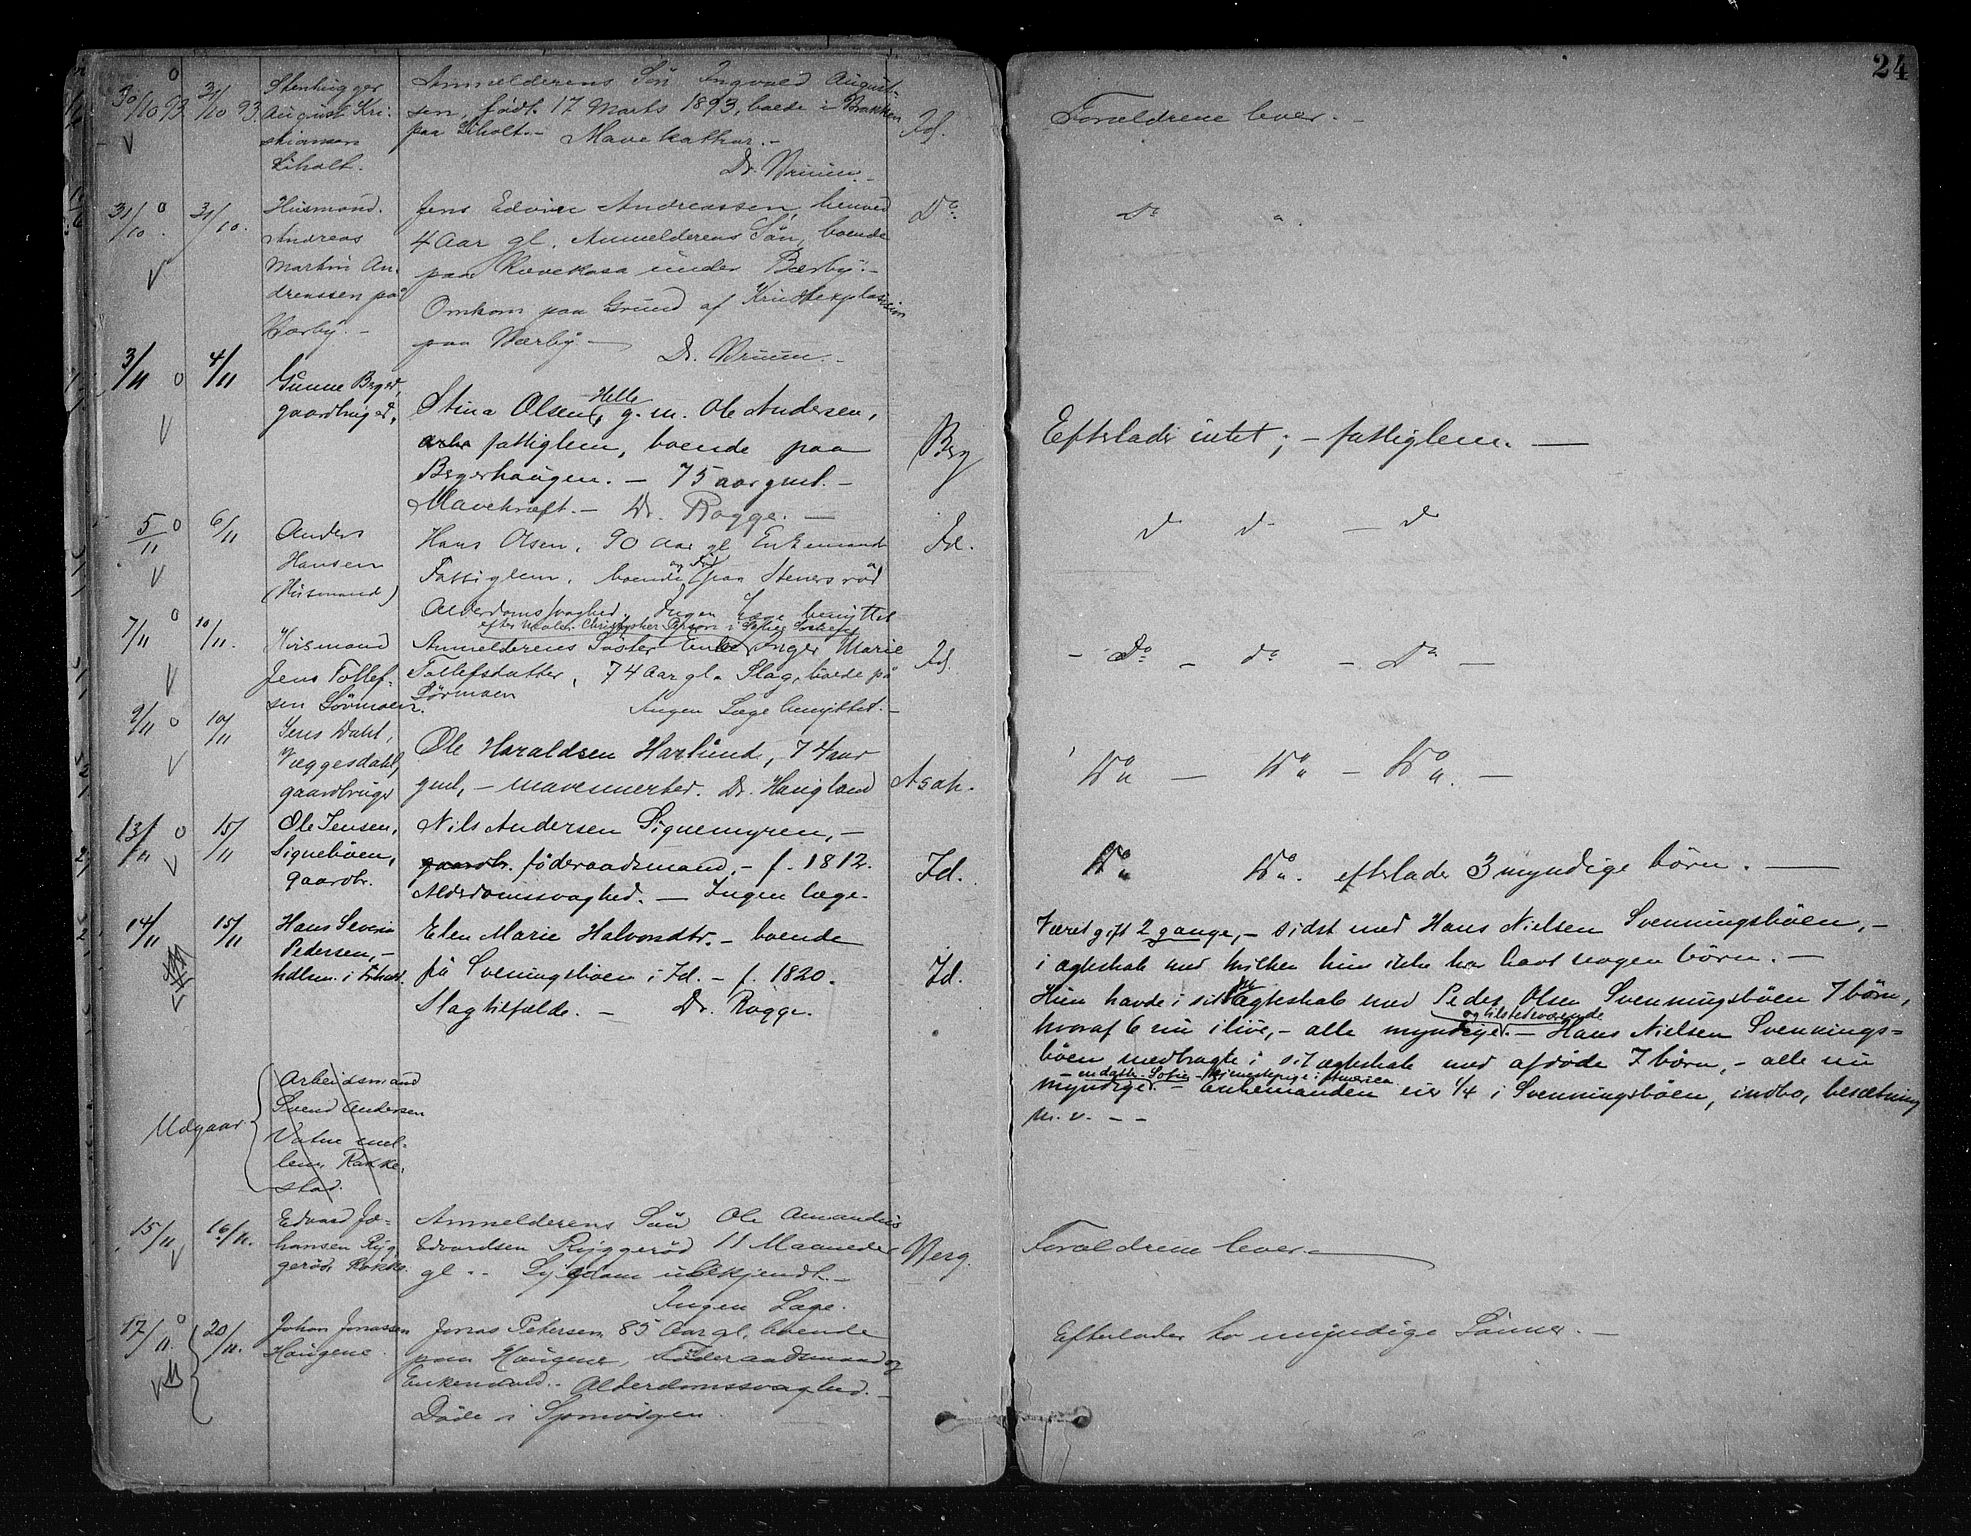 24
30/10 93. 31/10 93. Stenhugger
August Kri-
stiansen
Liholt.
Anmelderens Søn Ingvald August-
sen, født 17 Marts 1893, boede i Brakken
paa Liholt. - Mavekathar. -
Dr. Bruun. -
Id.
Forældrene lever. -
31/10. 31/10. Husmand
Andreas
Martin An-
dreassen på
Bærby. -
Jens Edvin Andreassen, henved
4 Aar gl. Anmelderens Søn, boende
paa Rævekasa under Bærby. -
Omkom paa Grund af Krudtexplosion
paa Bærby. -
Dr. Bruun. -
Do.
Do "
3/11 4/11 Gunne Berger,
gaardbruger,
Stina Olsen Helle, g. m. Ole Andersen,
fattiglem, boende paa
Bergerhaugen. - 75 aar gml. -
Mavekræft. - Dr. Rogge. -
Berg
Efterlader intet; - fattiglem. -
5/11 6/11 Anders
Hansen
(Husmand)
Hans Olsen, 90 aar gl Enkemand
og Fattiglem, boende paa Stenersrød
Alderdomssvaghed, Ingen Læge benyttet
Id.
d d - d
7/11 10/11. Husmand
Jens Tollef-
sen Sørmoen.
Anmelderens Søster Enke Inger Marie
Tollefsdatter, 74 Aar gl. Slag, boede på
Sørmoen
Ingen Læge benyttet. -
Id.
- Do - do - Do -
9/11 10/11 Jens Dahl,
Væggesdahl,
gaardbruger
Ole Haraldsen Harlund, 74 aar
gml, - mavennerter. Dr. Haugland
Asak.
Do - Do - Do. -
13/11 15/11 Ole Jensen,
Signebøen,
gaardbr.
Nils Andersen Signemyren, -
gaardbr. føderaadsmand, - f. 1812.
Alderdomssvaghed. - Ingen læge.
Id.
Do Do. efterlader 3 myndige børn. -
14/11 15/11 Hans Severin
Pedersen, -
hdlm. i Frhald.
Elen Marie Halvorsdtr. - boende
på Sveningsbøen i Id. - f. 1820.
Slagtilfælde. - Dr. Rogge.
Id.
Været gift 2 gange, - sidst med Hans Nielsen Svenningsbøen, -
i ægteskab med hvilken hun ikke har havt nogen børn. -
Hun havde i sit ægteskab med Peder Olsen Svenningsbøen 7 børn,
og tilstedeværende
hvoraf 6 nu i live, - alle myndige. - Hans Nielsen Svennings-
bøen medbragte i sit ægteskab med afdøde 7 børn, - alle nu
- en datter Sofie - i America.
myndige. - Enkemanden eier 1/4 i Svenningsbøen, indbo, besætning
m. v. - -
Udgaar
Arbeidsmand
Svend Andersen
Vatne mel-
lem, Rakke-
stad.
15/11 16/11. Edvard Jo-
hansen Ryg-
gerød, Rokke.
Anmelderens Søn Ole Amandus
Edvardsen Ryggerød 11 Maaneder
gl. - Sygdom ubekjendt. -
Ingen Læge.
Berg.
Forældrene lever. -
17/11. 20/11. Johan Jonassen
Haugene.
Jonas Petersen, 85 Aar gl, boende
paa Haugene, Føderaadsmand og
Enkemand. - Alderdomssvaghed. -
Døde i Sponvigen.
Efterlader to myndige Sønner. -